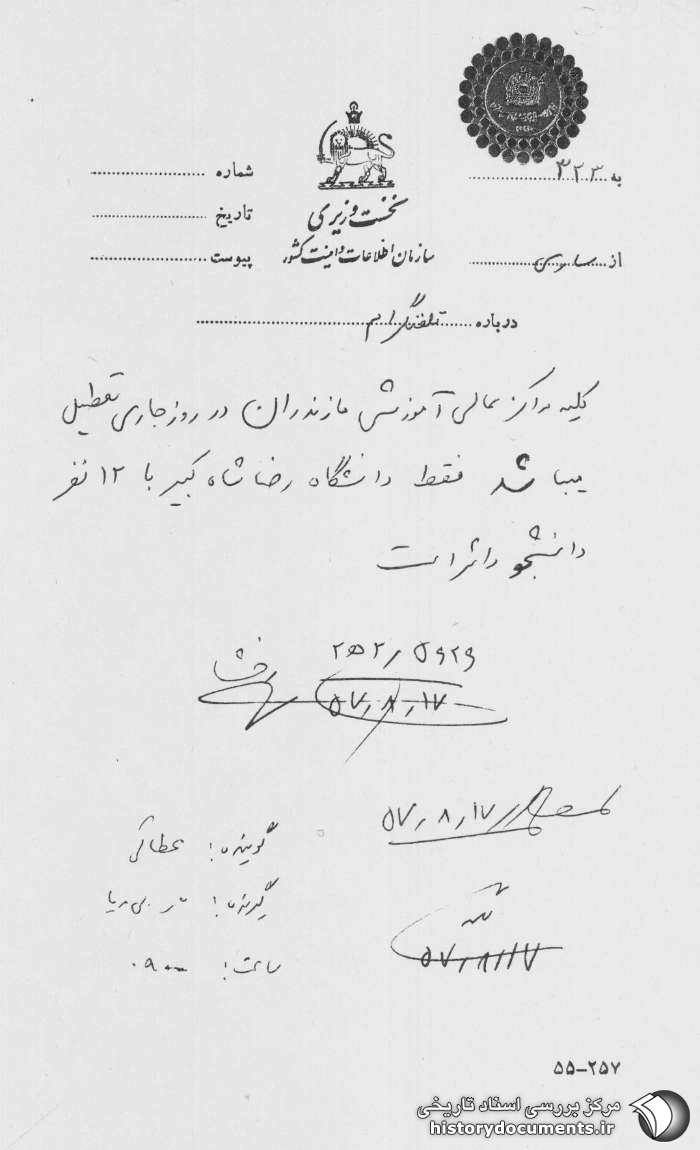 به ۳۲۳ شماره
نخست وزیری تاریخ
از ساری سازمان اطلاعات و امنیت کشور پیوست
درباره تلفنگرام
کلیه مراکز عالی آموزشی مازندران در روز جاری تعطیل
میباشد فقط دانشگاه رضا شاه کبیر با ۱۲ نفر
دانشجو دائر است
۲۵۲/۵۹۲۹
۵۷/۸/۱۷
۵۷/۸/۱۷
گوینده:
گیرنده:
ساعت: ۰۹۰۰
۵۷/۸/۱۷
۵۵-۲۵۷
مرکز بررسی اسناد تاریخی
historydocuments.ir